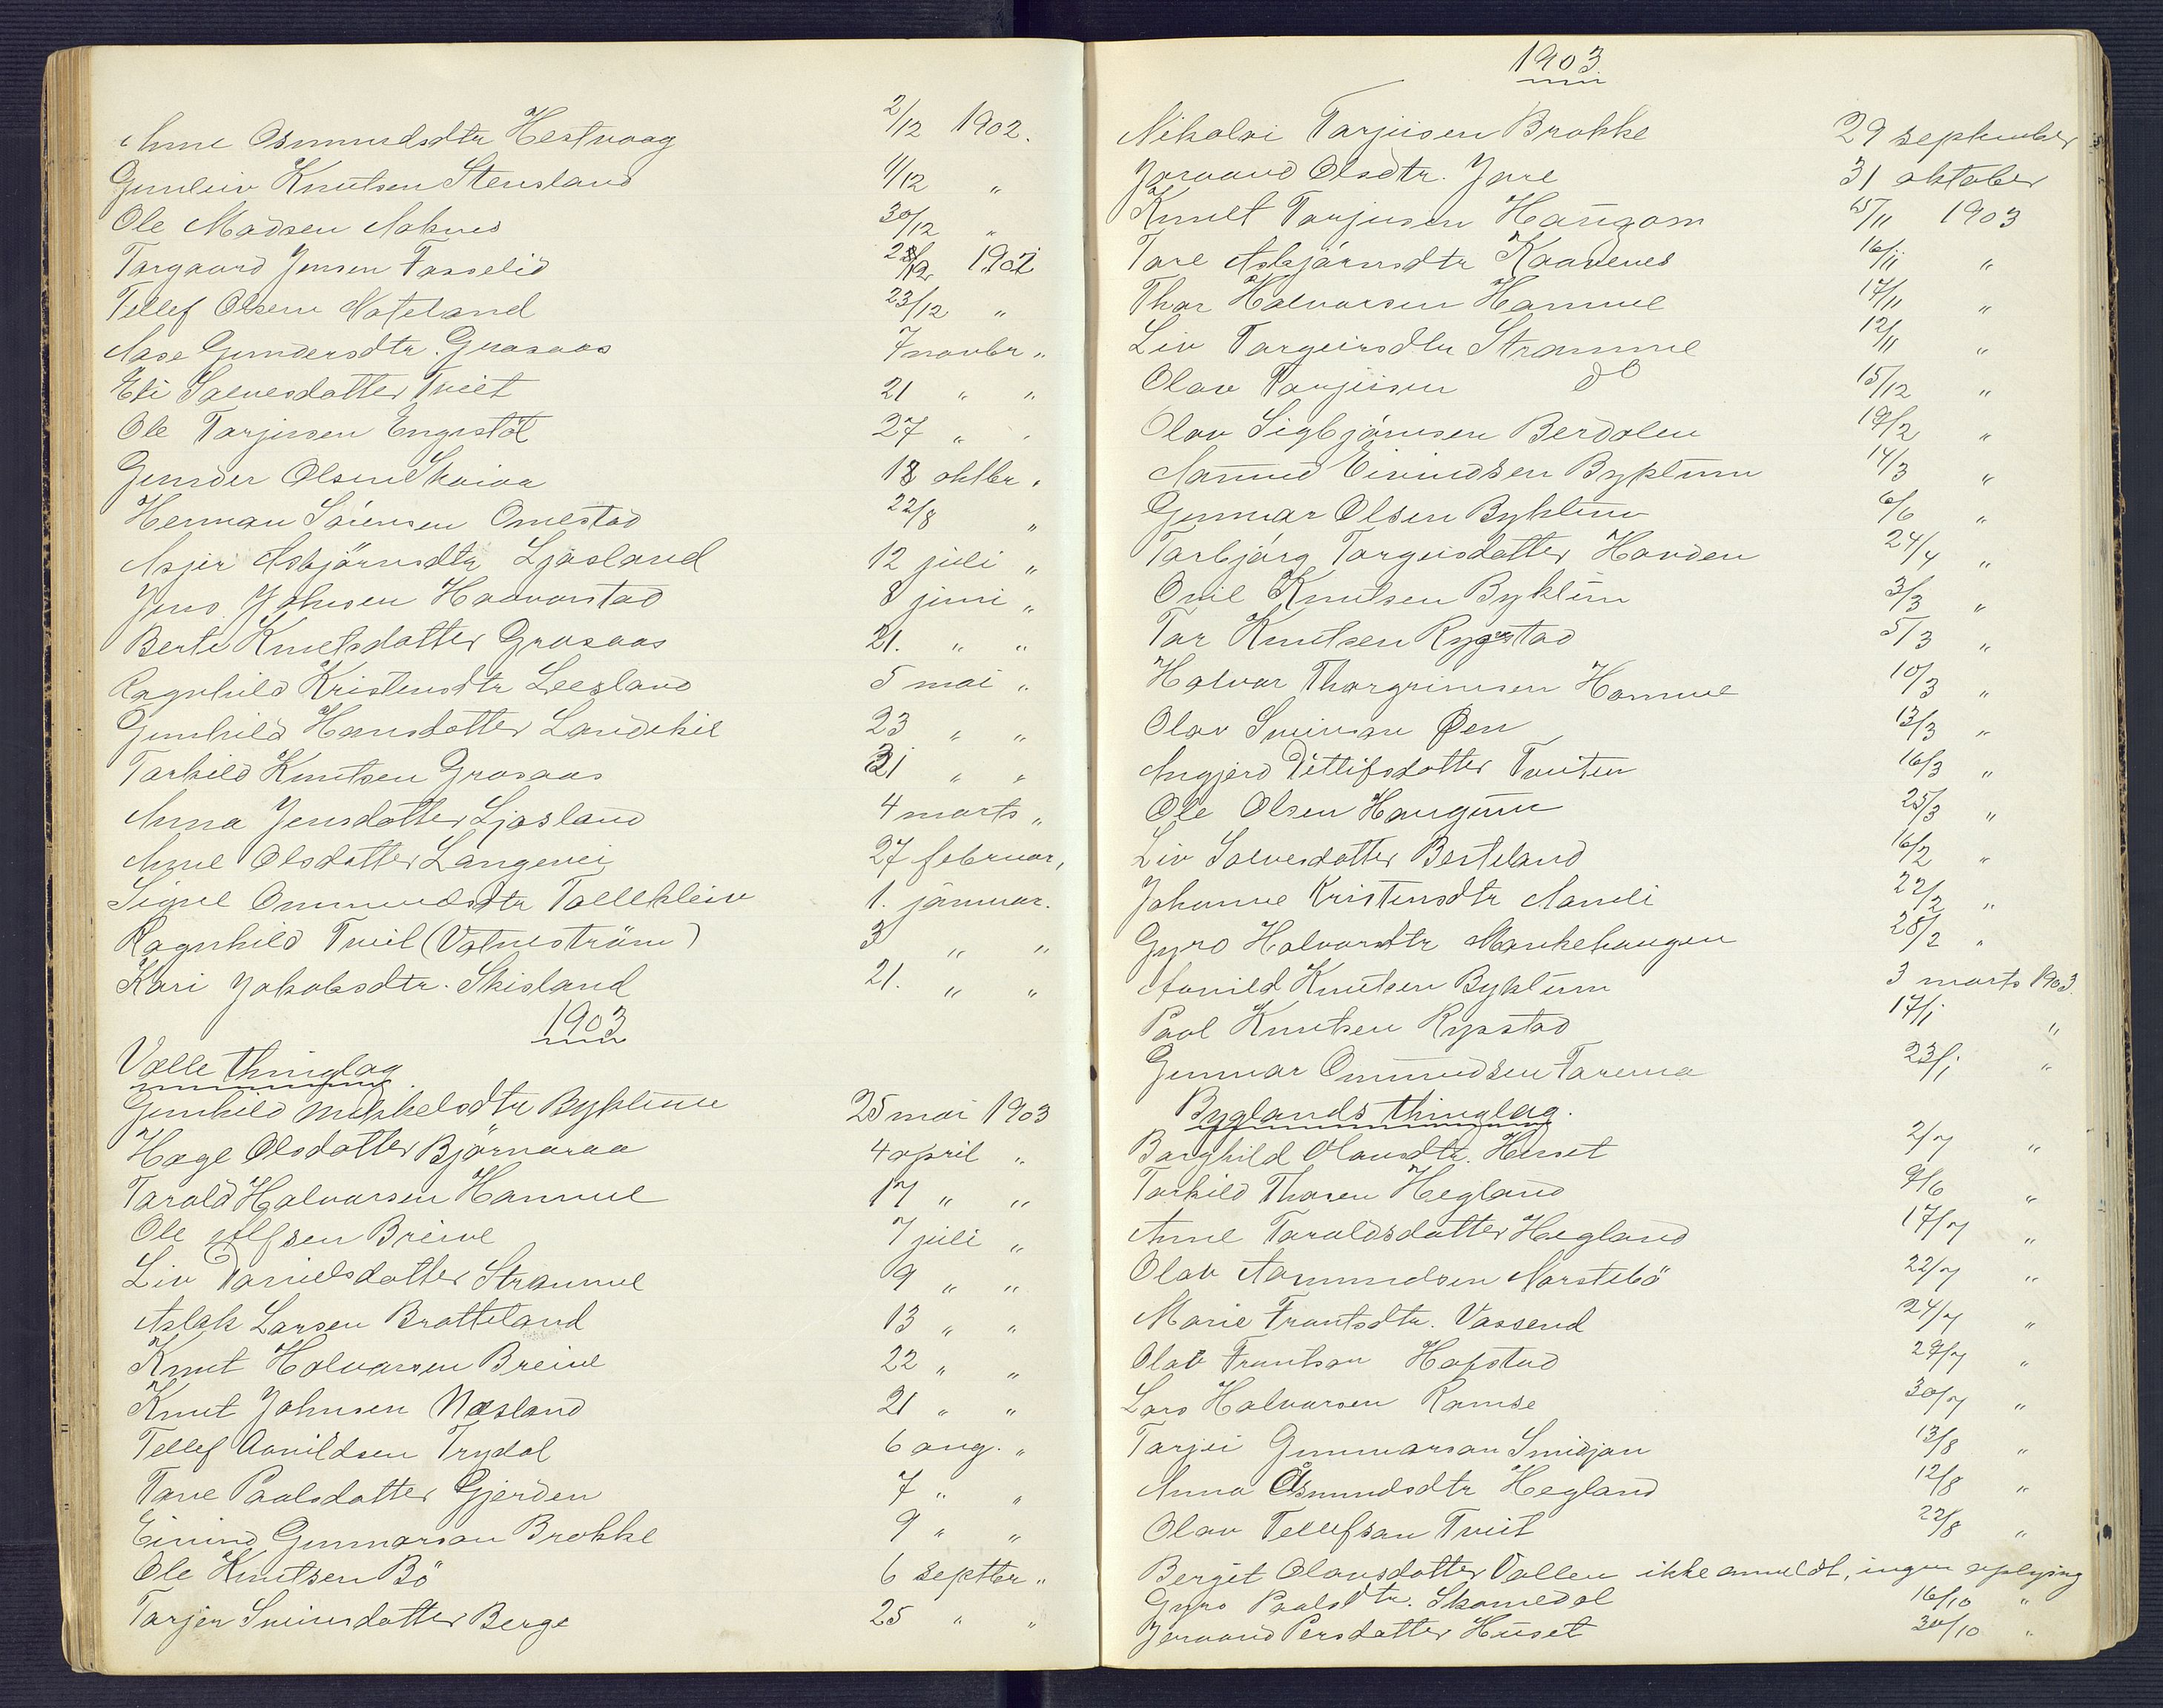 Anne Osmundsdtr Hestvaag 2/12 1902.
Gunleiv Knutsen Stensland 4/12 "
Ole Madsen Aaknes 30/12 "
Torgaard Jensen Fasselid 28/12 1902
Tellef Olsen Nateland 23/12 "
Aase Gundersdtr. Grosaas 7 novbr "
Eli Salvesdatter Tveit 21 " "
Ole Tarjusen Engestöl 27 " "
Gunder Olsen Skaiaa 18 oktbr "
Herman Sörensen Omestad 22/8 "
Asjer Asbjörnsdtr Ljosland 12 juli "
Jens Johnsen Haavorstad 8 juni "
Berte Knutsdatter Grosaas 21. " "
Ragnhild Kristensdtr Leesland 5 mai "
Gunhild Hansdatter Landekil 23 " "
Torkild Knutsen Grosaas 31 " "
Anna Jensdatter Ljosland 4 marts "
Anne Olsdatter Langevei 27 februar "
Signe Ommundsdtr Tallekleiv 1. januar.
Ragnhild Tveit (Vatneström) 3 " "
Kari Jakobsdtr. Skisland 21. " "
1903
Valle thinglag.
Gunhild Mikkelsdtr Byklum 25 mai 1903
Hoge Olsdatter Björnaraa 4 april "
Tarald Halvorsen Homme 17 " "
Ole Alfsen Breive 7 juli "
Liv Danielsdatter Stramme 9 " "
Aslak Larsen Bratteland 13 " "
Knut Holvorsen Breive 22 " "
Knut Johnsen Næsland 21 " "
Tellef Aanildsen Trydal 6 aug. "
Tone Paalsdatter Gjerden 7 " "
Eivind Gunnarsan Brokke 9 " "
Ole Knutsen Bö 6 septbr "
Tarjer Sveinsdatter Berge 25 " "
1903
Nikolai Tarjeisen Brokke 29 september
Joraand Olsdtr. Jore 31 oktober
Knut Tarjusen Haugom 15/11 1903
Tore Asbjörnsdtr Kaavenes 16/11 "
Thor Halvorsen Homme 17/11 "
Liv Targeirsdtr Stramme 12/11 "
Olav Tarjeisen do 15/12 "
Olav Sigbjörnsen Berdalen 19/2 "
Aamund Eivindsen Byklum 14/3 "
Gunnar Olsen Byklum 6/6 "
Torbjörg Torgeisdatter Hovden 24/4 "
Knutsen Byklum 3/3 "
Tor Knutsen Rygstad 5/3 "
Halvor Thorgrimsen Homme 10/3 "
Olav Sveinson Øen 13/3 "
Angjerd Ditlifsdatter Tveiten 16/3 "
Ole Olsen Haugum 25/3 "
Liv Salvesdatter Besteland 16/2 "
Johanne Kristensdtr Aamli 22/2 "
Gyro Halvorsdtr Mankehaugen 28/2 "
Aanild Knutsen Byklum 3 marts 1903.
Paal Knutsen Rysstad 17/1 "
Gunnar Ommundsen Farema 23/1 "
Byglands thinglag.
Borghild Olausdtr. Huset 2/7 "
Torkild Thoren Hegland 9/6 "
Anne Taraldsdatter Hegland 17/7 "
Olav Aamundsen Norstebö 22/7 "
Marie Frantsdtr. Vassend 24/7 "
Olav Frantsan Hapstad 27/7 "
Lars Halvorsen Ramse 30/7 "
Tarjei Gunnarsan Smidjan 13/8 "
Anna Åsmundsdtr Hegland 12/8 "
Olav Tellefsan Tveit 22/8 "
Bergit Olavsdatter Vallen ikke anmeldt, ingen oplysing
Gyro Paalsdtr. Skomedal 16/10 "
Joraand Persdatter Huset 30/10 "